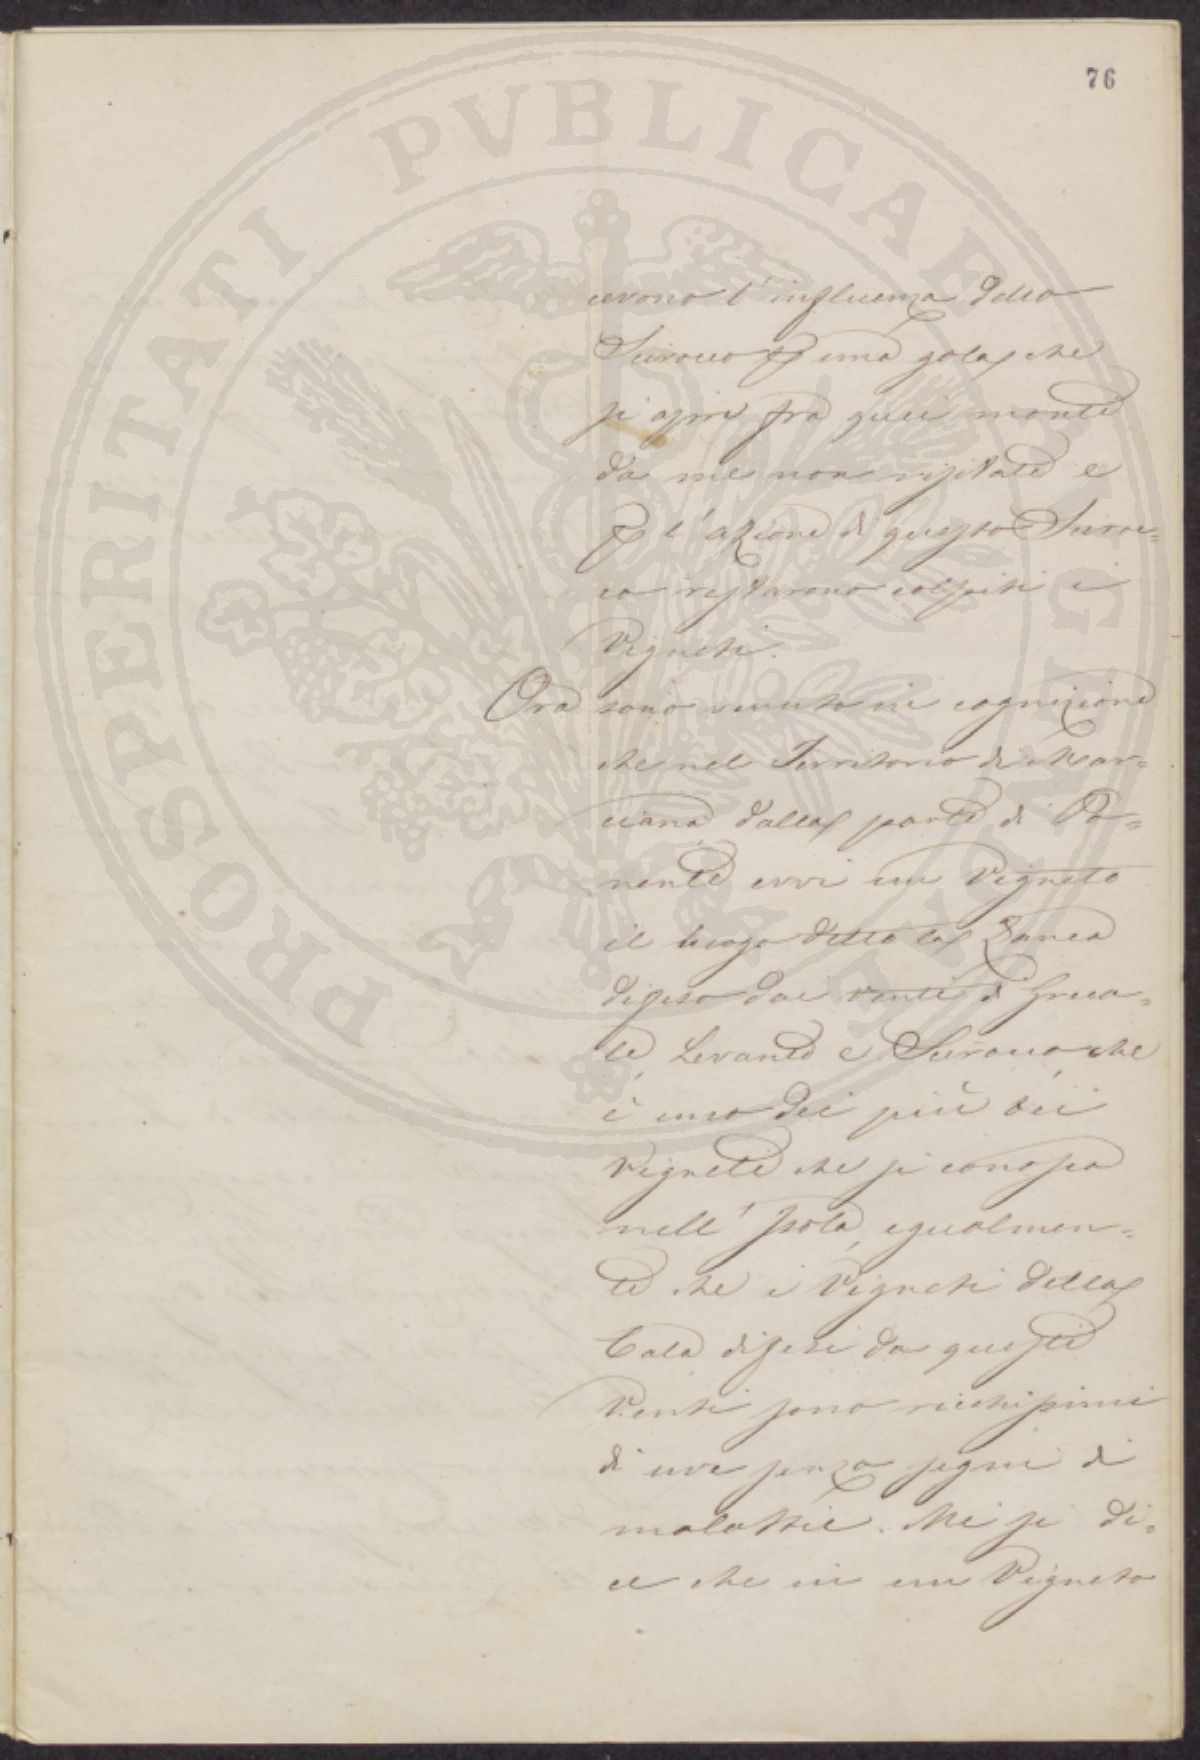 76
PROSPERITATI PVBLICAE AVGENDAE
cevono l'influenza dello
Scirocco p una gola che
si apre fra quei monti
da me non visitati e
p l'azione di questo Sciroc=
co restarono colpiti i
Vigneti.
Ora sono venuto in cognizione
che nel Territorio di Mar=
ciana dalla parte di Po=
nente evvi un Vigneto
il luogo detto la Zanca
difeso dai venti di Greca=
le, Levante e Scirocco che
è uno dei più bei
Vigneti che si conosca
nell'Isola, egualmen=
te che i Vigneti della
Cala difesi da questi
Venti sono ricchissimi
di uve senza segni di
malattie. Mi si di=
ce che in un Vigneto